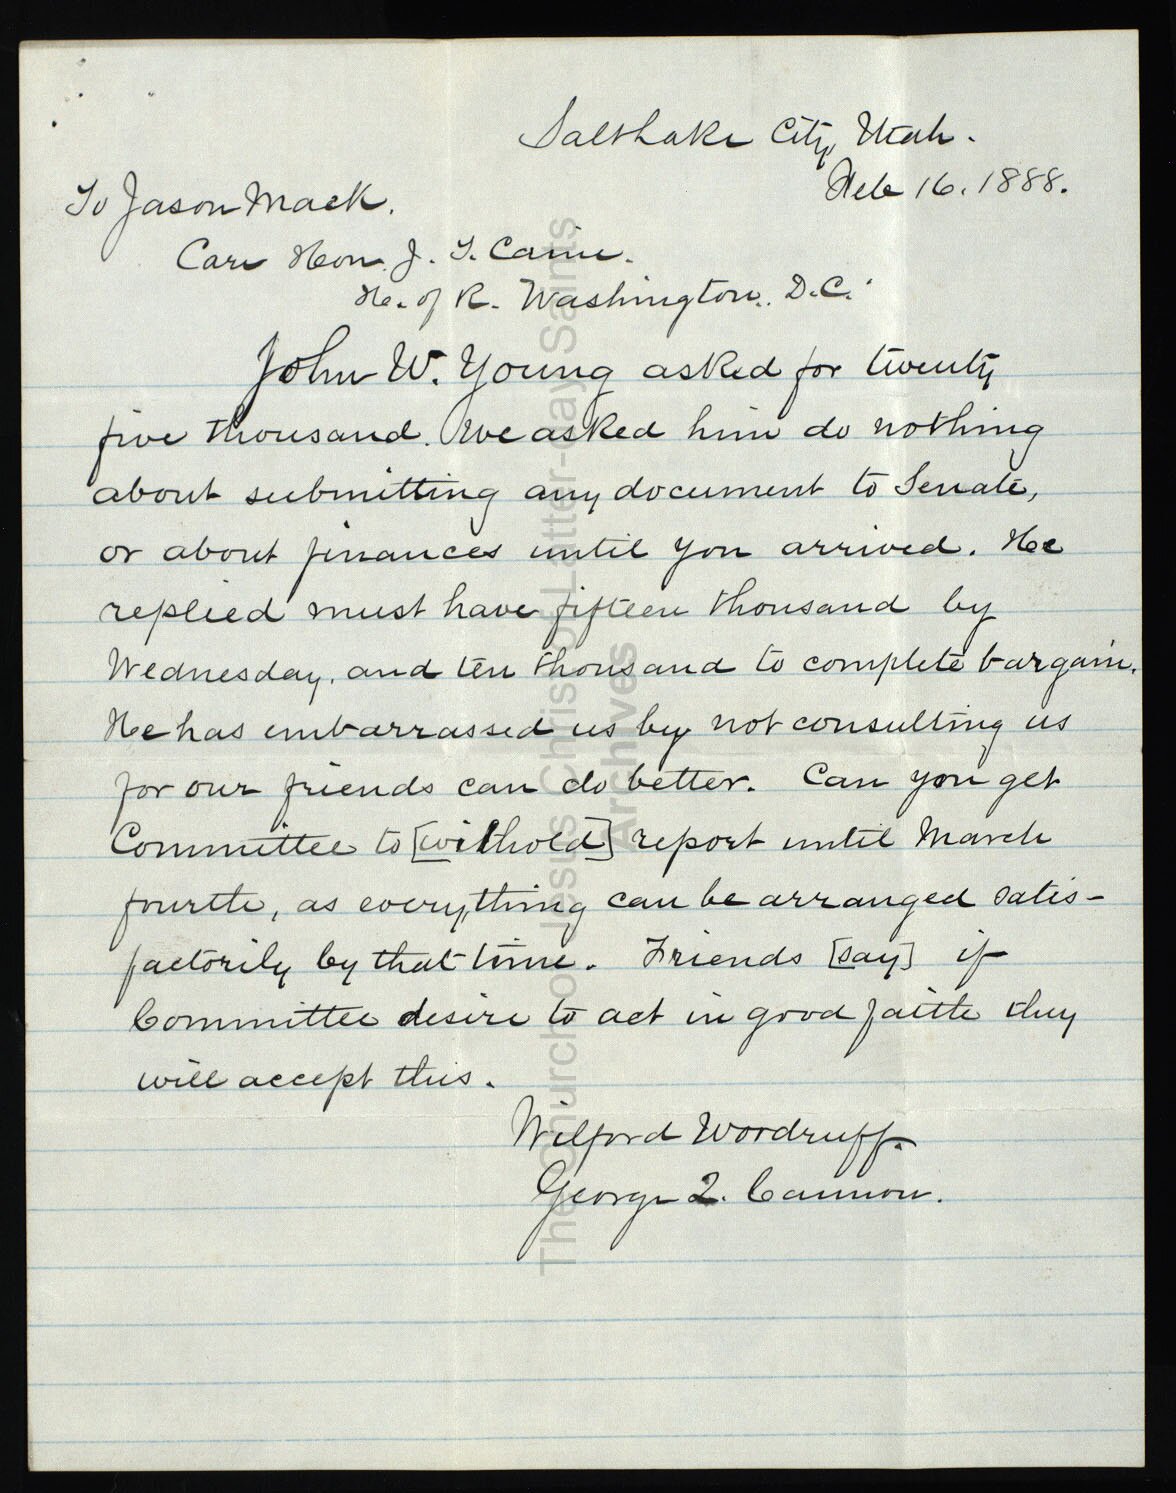 Salt Lake City, Utah.
Feb 16. 1888.
To Jason Mack.
Care Hon. J. T. Caine.
H. of R. Washington. D.C.
John W. Young asked for twenty
five thousand. We asked him do nothing
about submitting any document to Senate,
or about finances until you arrived. He
replied must have fifteen thousand by
Wednesday, and ten thousand to complete bargain.
He has embarrassed us by not consulting us
for our friends can do better. Can you get
Committee to [withold] report until March
fourth, as everything can be arranged satis-
factorily by that time. Friends [say] if
Committee desire to act in good faith they
will accept this.
Wilford Woodruff.
George Q. Cannon.
The Church of Jesus Christ of Latter-day Saints
Archives